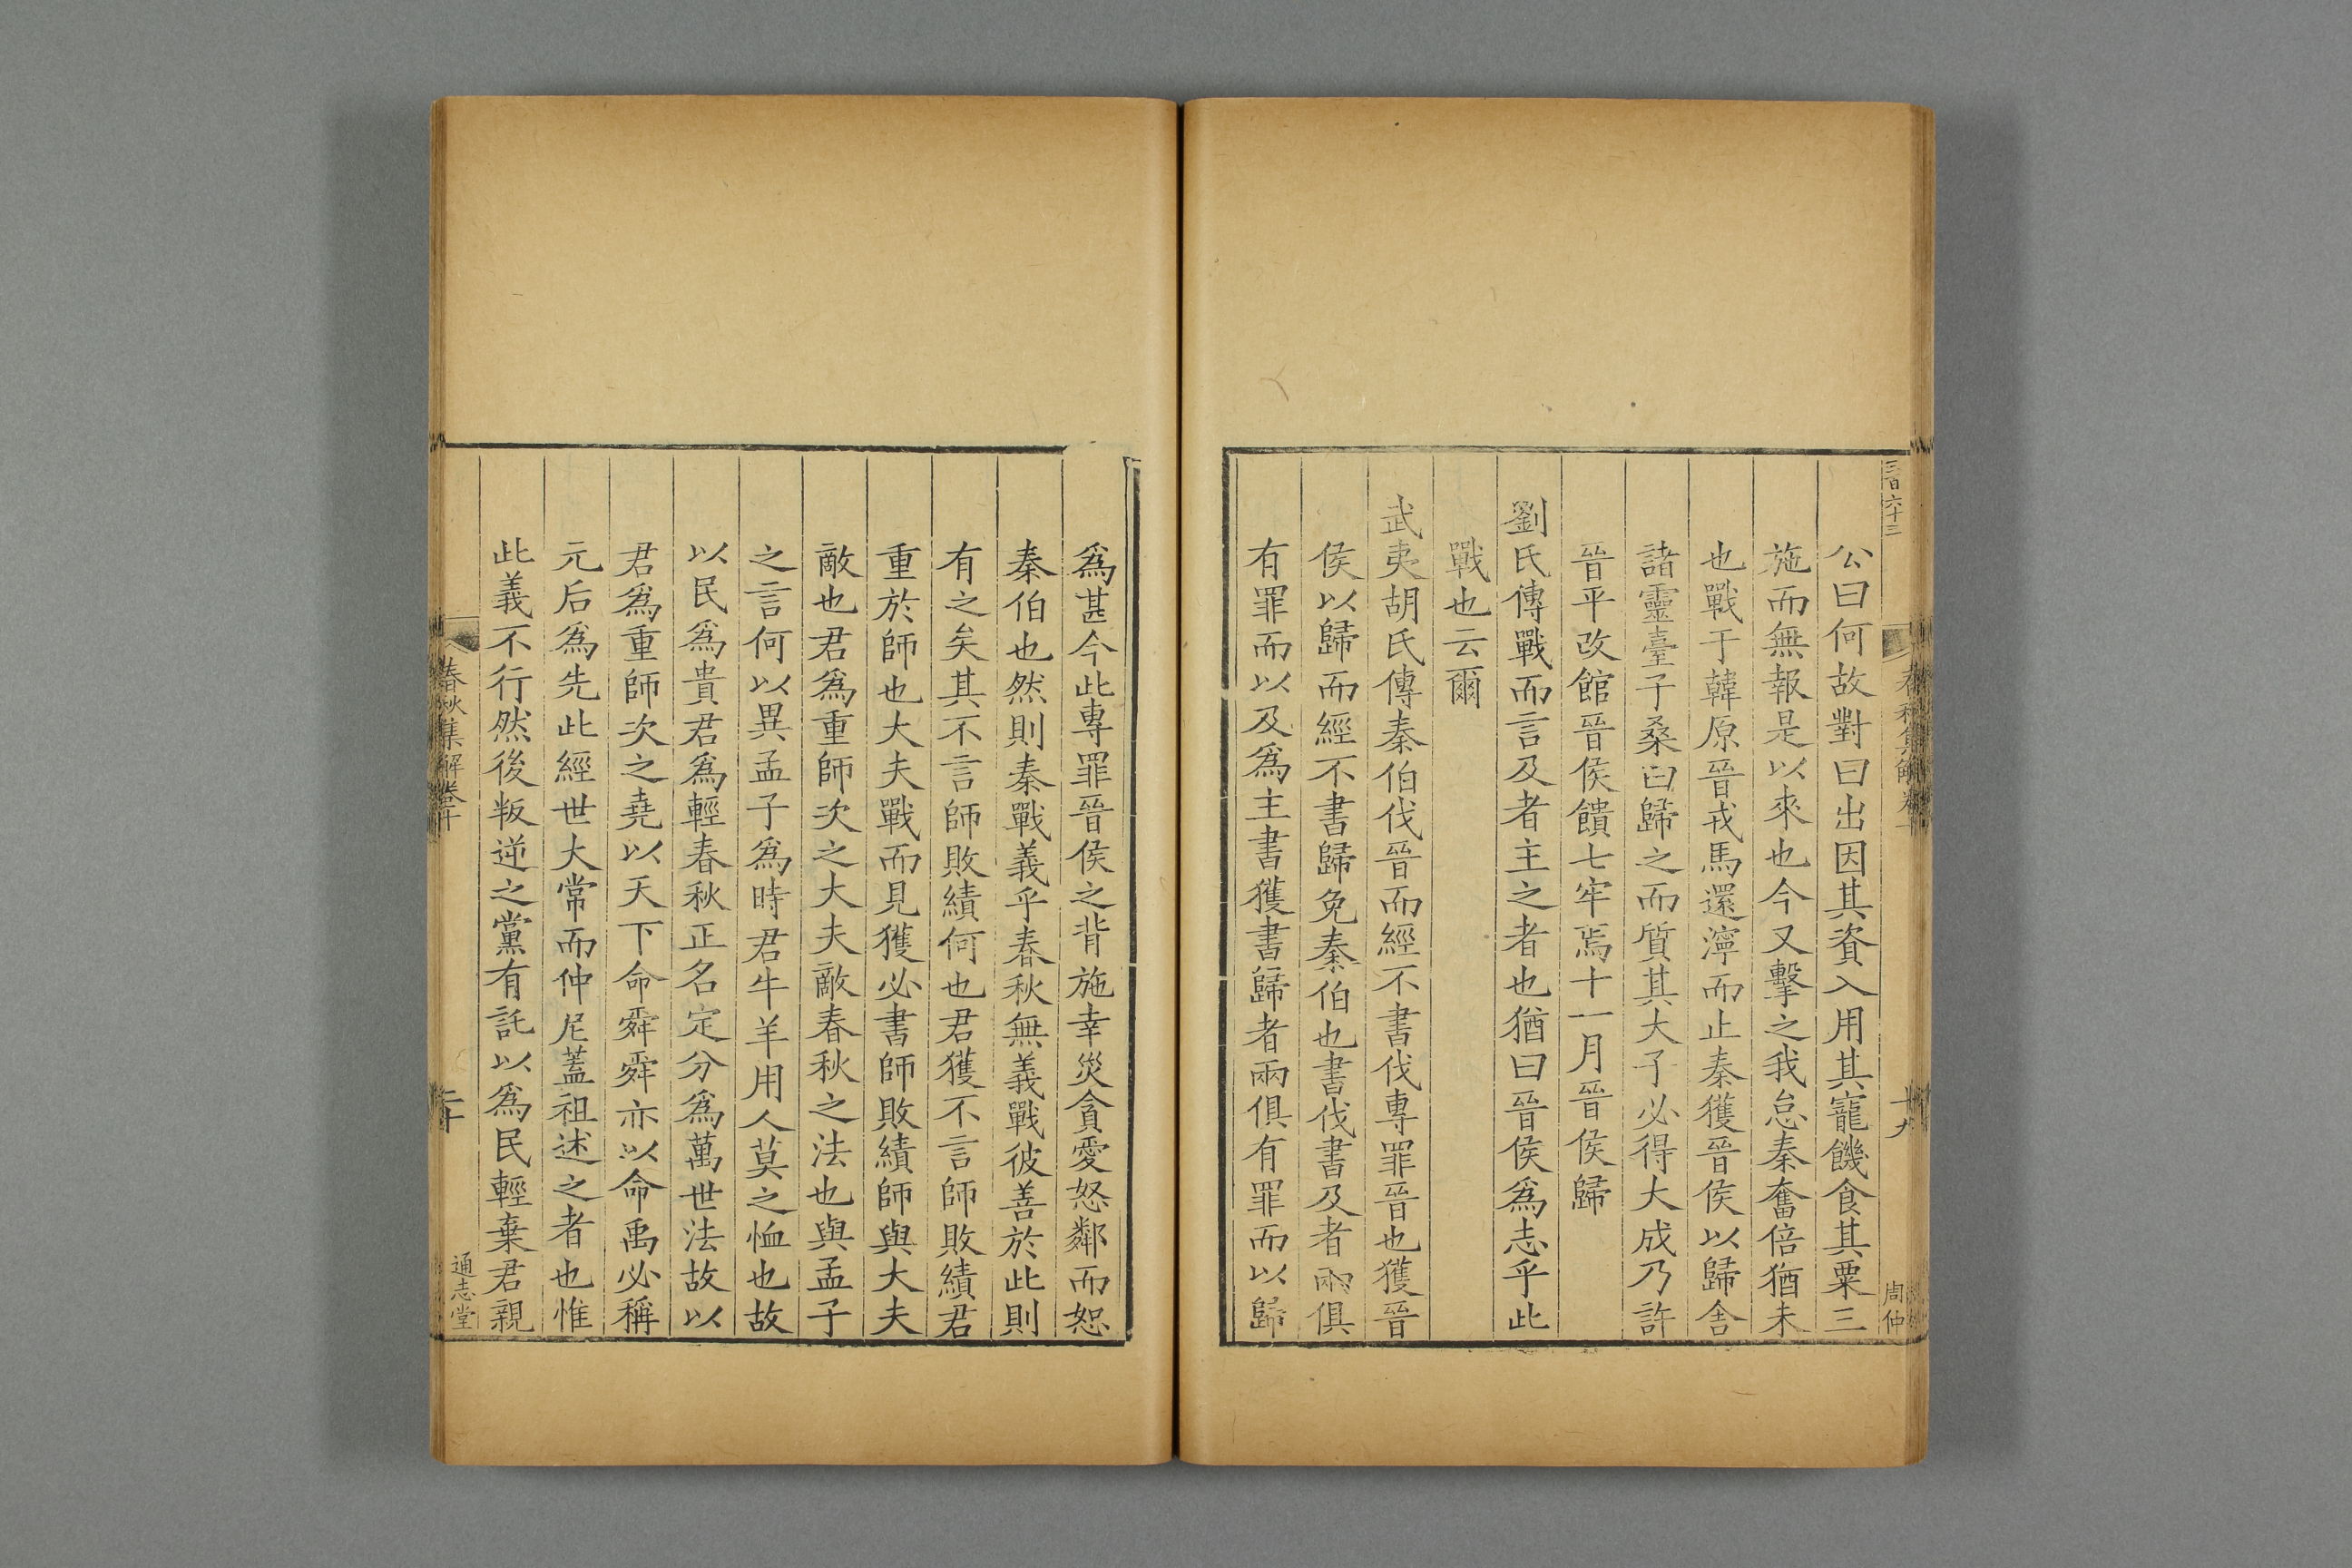 三百六十三
公曰何故對曰出因其資入用其寵饑食其粟三
施而無報是以來也今又擊之我怠秦奮倍猶未
也戰于韓原晉戎馬還濘而止秦獲晉侯以歸舍
諸靈臺子桑曰歸之而質其大子必得大成乃許
晉平改館晉侯饋七牢焉十一月晉侯歸
劉氏傳戰而言及者主之者也猶曰晉侯爲志乎此
戰也云爾
武夷胡氏傳秦伯伐晉而經不書伐專罪晉也獲晉
侯以歸而經不書歸免秦伯也書伐書及者兩俱
有罪而以及爲主書獲書歸者兩俱有罪而以歸
春秋集解卷十
十九
周仲
爲甚今此專罪晉侯之背施幸災貪愛怒鄰而恕
秦伯也然則秦戰義乎春秋無義戰彼善於此則
有之矣其不言師敗績何也君獲不言師敗績君
重於師也大夫戰而見獲必書師敗績師與大夫
敵也君爲重師次之大夫敵春秋之法也與孟子
之言何以異孟子爲時君牛羊用人莫之恤也故
以民爲貴君爲輕春秋正名定分爲萬世法故以
君爲重師次之堯以天下命舜舜亦以命禹必稱
元后爲先此經世大常而仲尼蓋祖述之者也惟
此義不行然後叛逆之黨有託以爲民輕棄君親
春秋集解卷十
二十
通志堂